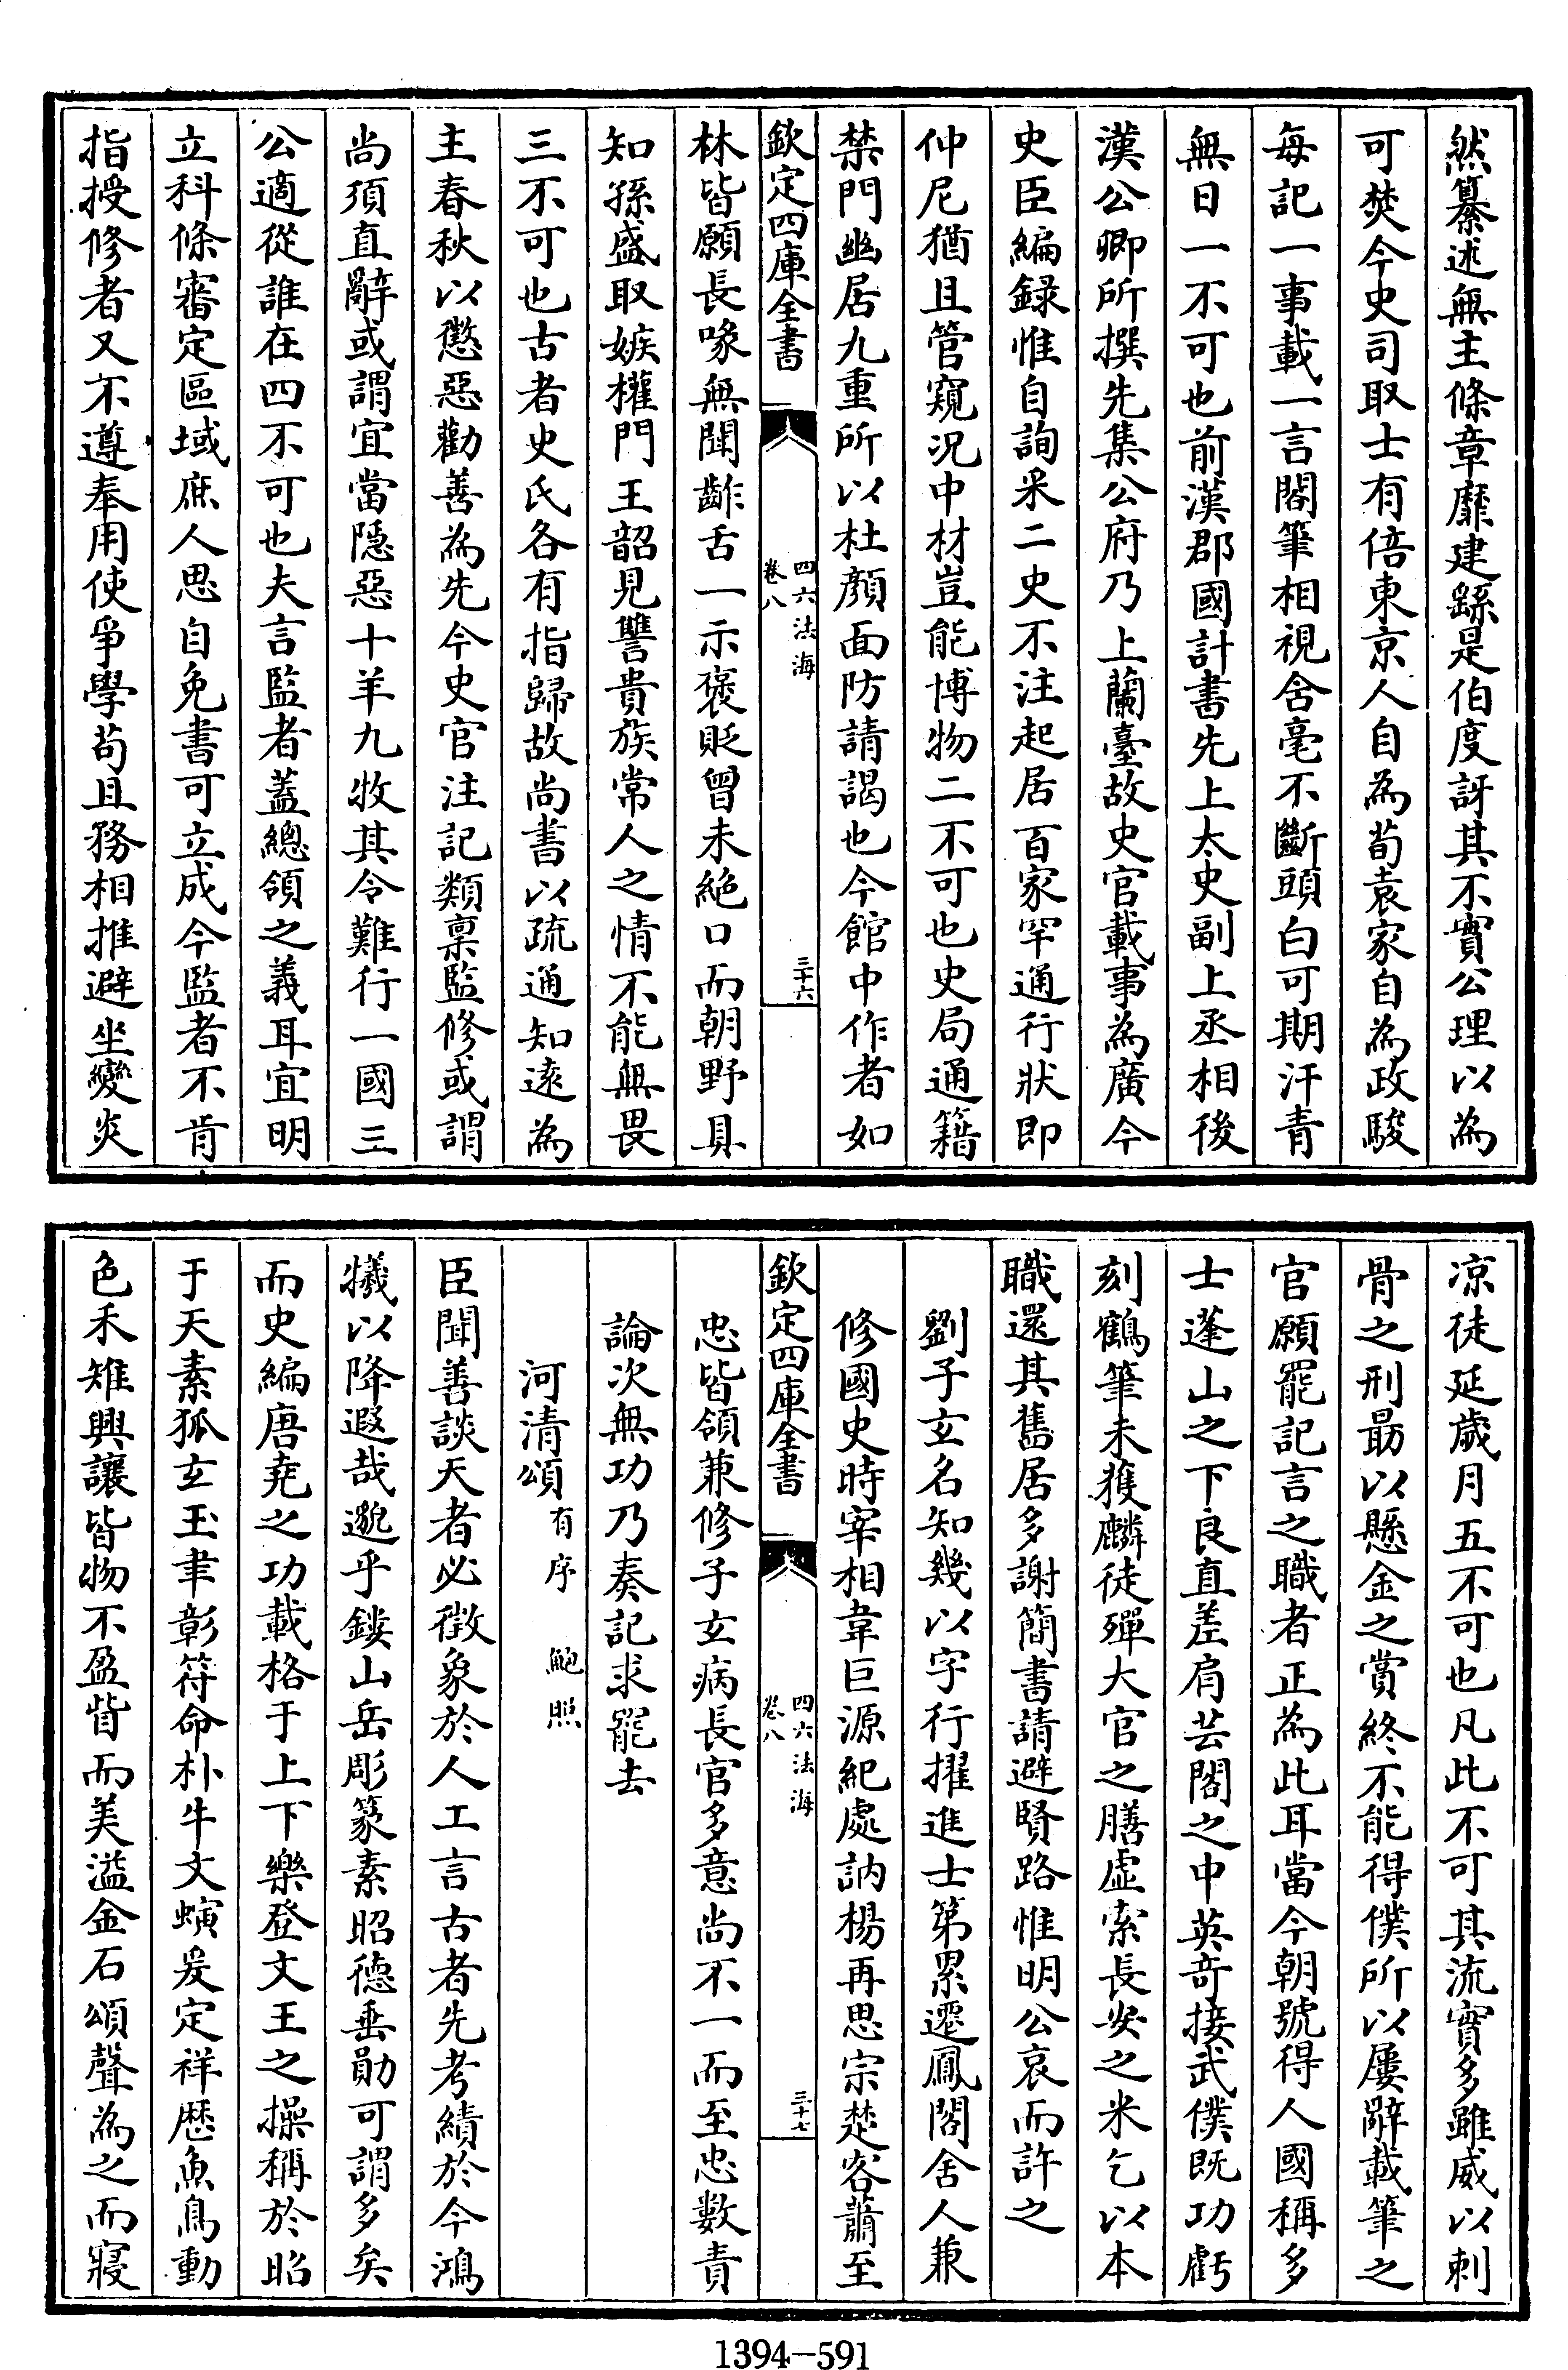 然纂述無主條章靡建繇是伯度訝其不實公理以為
可焚今史司取士有倍東京人自為荀袁家自為政駿
每記一事載一言閣筆相視含毫不斷頭白可期汗青
無日一不可也前漢郡國計書先上太史副上丞相後
漢公卿所撰先集公府乃上蘭臺故史官載事為廣今
史臣編録惟自詢采二史不注起居百家罕通行狀即
仲尼猶且管窺况中材豈能博物二不可也史局通籍
禁門幽居九重所以杜顔面防請謁也今館中作者如
欽定四庫全書
四六法海
卷八
三十六
林皆願長喙無聞齚舌一示褒貶曾未絶口而朝野具
知孫盛取嫉權門王韶見讐貴族常人之情不能無畏
三不可也古者史氏各有指歸故尚書以疏通知遠為
主春秋以懲惡勸善為先今史官注記類禀監修或謂
尚須直辭或謂宜當隠惡十羊九牧其令難行一國三
公適從誰在四不可也夫言監者蓋總領之義耳宜明
立科條審定區域庶人思自免書可立成今監者不肯
指授修者又不遵奉用使爭學苟且務相推避坐變炎
凉徒延歲月五不可也凡此不可其流實多雖威以刺
骨之刑勗以懸金之賞終不能得僕所以屢辭載筆之
官願罷記言之職者正為此耳當今朝號得人國稱多
士蓬山之下良直差肩芸閣之中英竒接武僕既功虧
刻鶴筆未獲麟徒殫大官之膳虚索長安之米乞以本
職還其舊居多謝簡書請避賢路惟明公哀而許之
劉子玄名知幾以字行擢進士第累遷鳳閣舍人兼
修國史時宰相韋巨源紀處訥楊再思宗楚客蕭至
欽定四庫全書
四六法海
卷八
三十七
忠皆領兼修子玄病長官多意尚不一而至忠數責
論次無功乃奏記求罷去
河清頌有序 鮑照
臣聞善談天者必徵象於人工言古者先考績於今鴻
犧以降遐哉邈乎鏤山岳彫篆素昭德垂勛可謂多矣
而史編唐堯之功載格于上下樂登文王之操稱於昭
于天素狐玄玉聿彰符命朴牛文螾爰定祥歴魚鳥動
色禾雉興讓皆物不盈眥而美溢金石頌聲為之而寢
1394—591